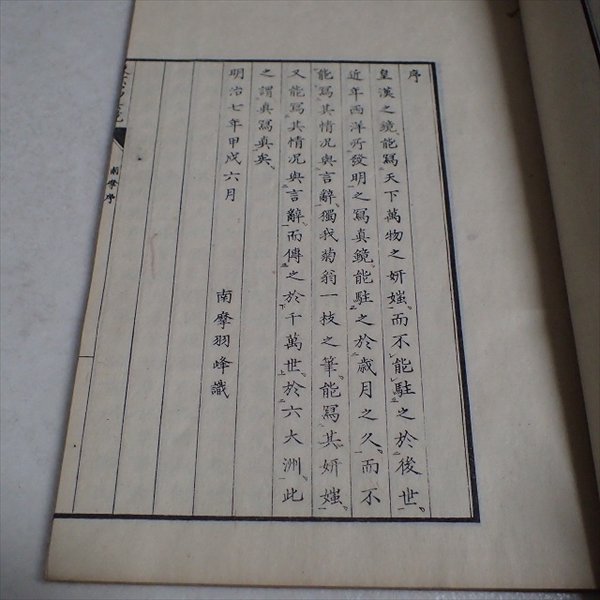 序
皇漢之鏡、能寫天下萬物之妍媸、而不能駐之於後世、
近年西洋所發明之寫真鏡、能駐之於歳月之久、而不
能寫其情况與言辭、獨我菊翁一枝之筆、能寫其妍媸、
又能寫其情况與言辭、而傳之於千萬世、於六大洲、此
之謂真寫真矣、
明治七年甲戌六月
南摩羽峰識
南摩序